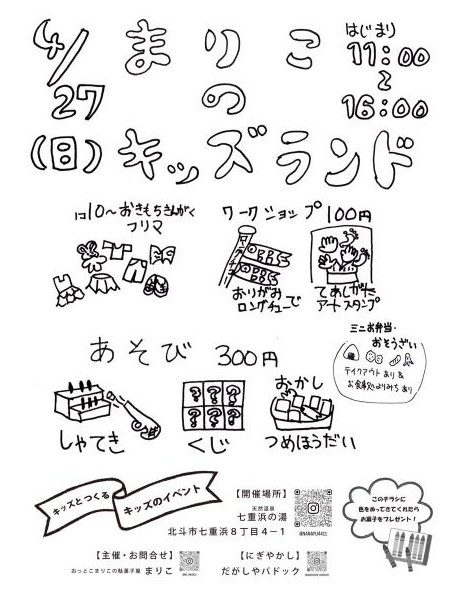 4/27(日)
まりこ
の
キッズランド
はじまり
11:00
~
16:00
1コ10〜おきもちきんがく
フリマ
ワークショップ 100円
おりがみ
ロングチューブで
てあしがた
アートスタンプ
ミニお弁当・
おそうざい
テイクアウトあり&
お食事処よりみちあり
あそび 300円
しゃてき
くじ
おかし
つめほうだい
キッズとつくる
キッズのイベント
【開催場所】
天然温泉
七重浜の湯
北斗市七重浜8丁目4−1
このチラシに
色をぬってきてくれたら
お菓子をプレゼント!
【主催・お問合せ】
おっとこまりこの駄菓子屋 まりこ
【にぎやかし】
だがしやパドック